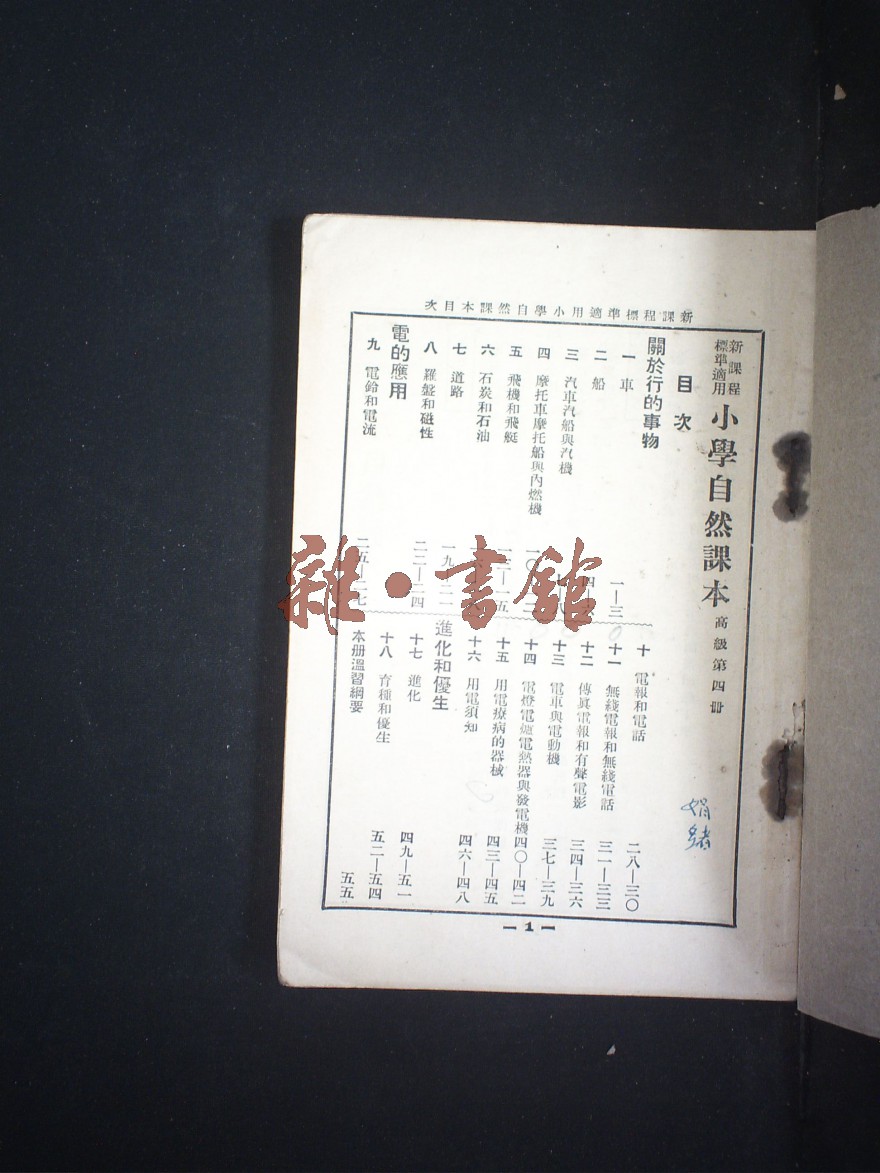 新課程標準適用小學自然課本目次
新課程
標準適用
小學自然課本
高級第四冊
目次
關於行的事物
一 車 一—三
二 船 四—
三 汽車汽船與汽機 八
四 摩托車摩托船與內燃機 一〇 二
五 飛機和飛艇 一三—一五
六 石炭和石油
七 道路 一九 二一
八 羅盤和磁性 二二—二四
電的應用
九 電鈴和電流 二五—二七
十 電報和電話 二八—三〇
十一 無綫電報和無綫電話 三一—三三
十二 傳眞電報和有聲電影 三四—三六
十三 電車與電動機 三七—三九
十四 電燈電爐電熱器與發電機 四〇—四二
十五 用電療病的器械 四三—四五
十六 用電須知 四六—四八
進化和優生
十七 進化 四九—五一
十八 育種和優生 五二—五四
本册溫習綱要 五五
—1—
娟緒
雜·書館